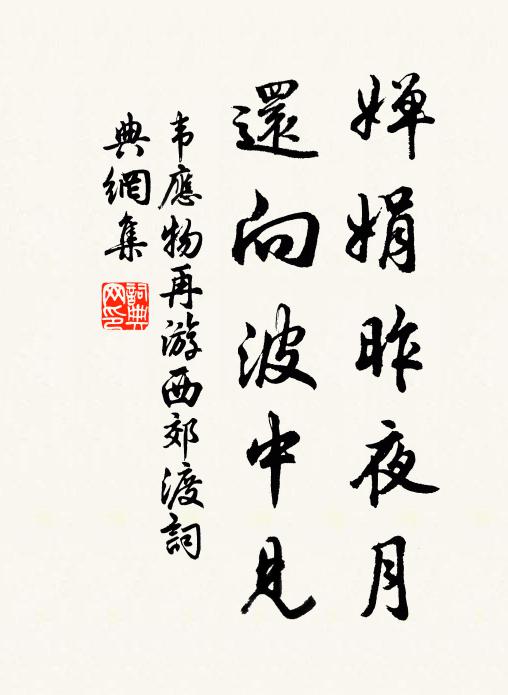 婵娟昨夜月
還向波中見
韦應物再游西郊渡詞
典網集
詞典网印